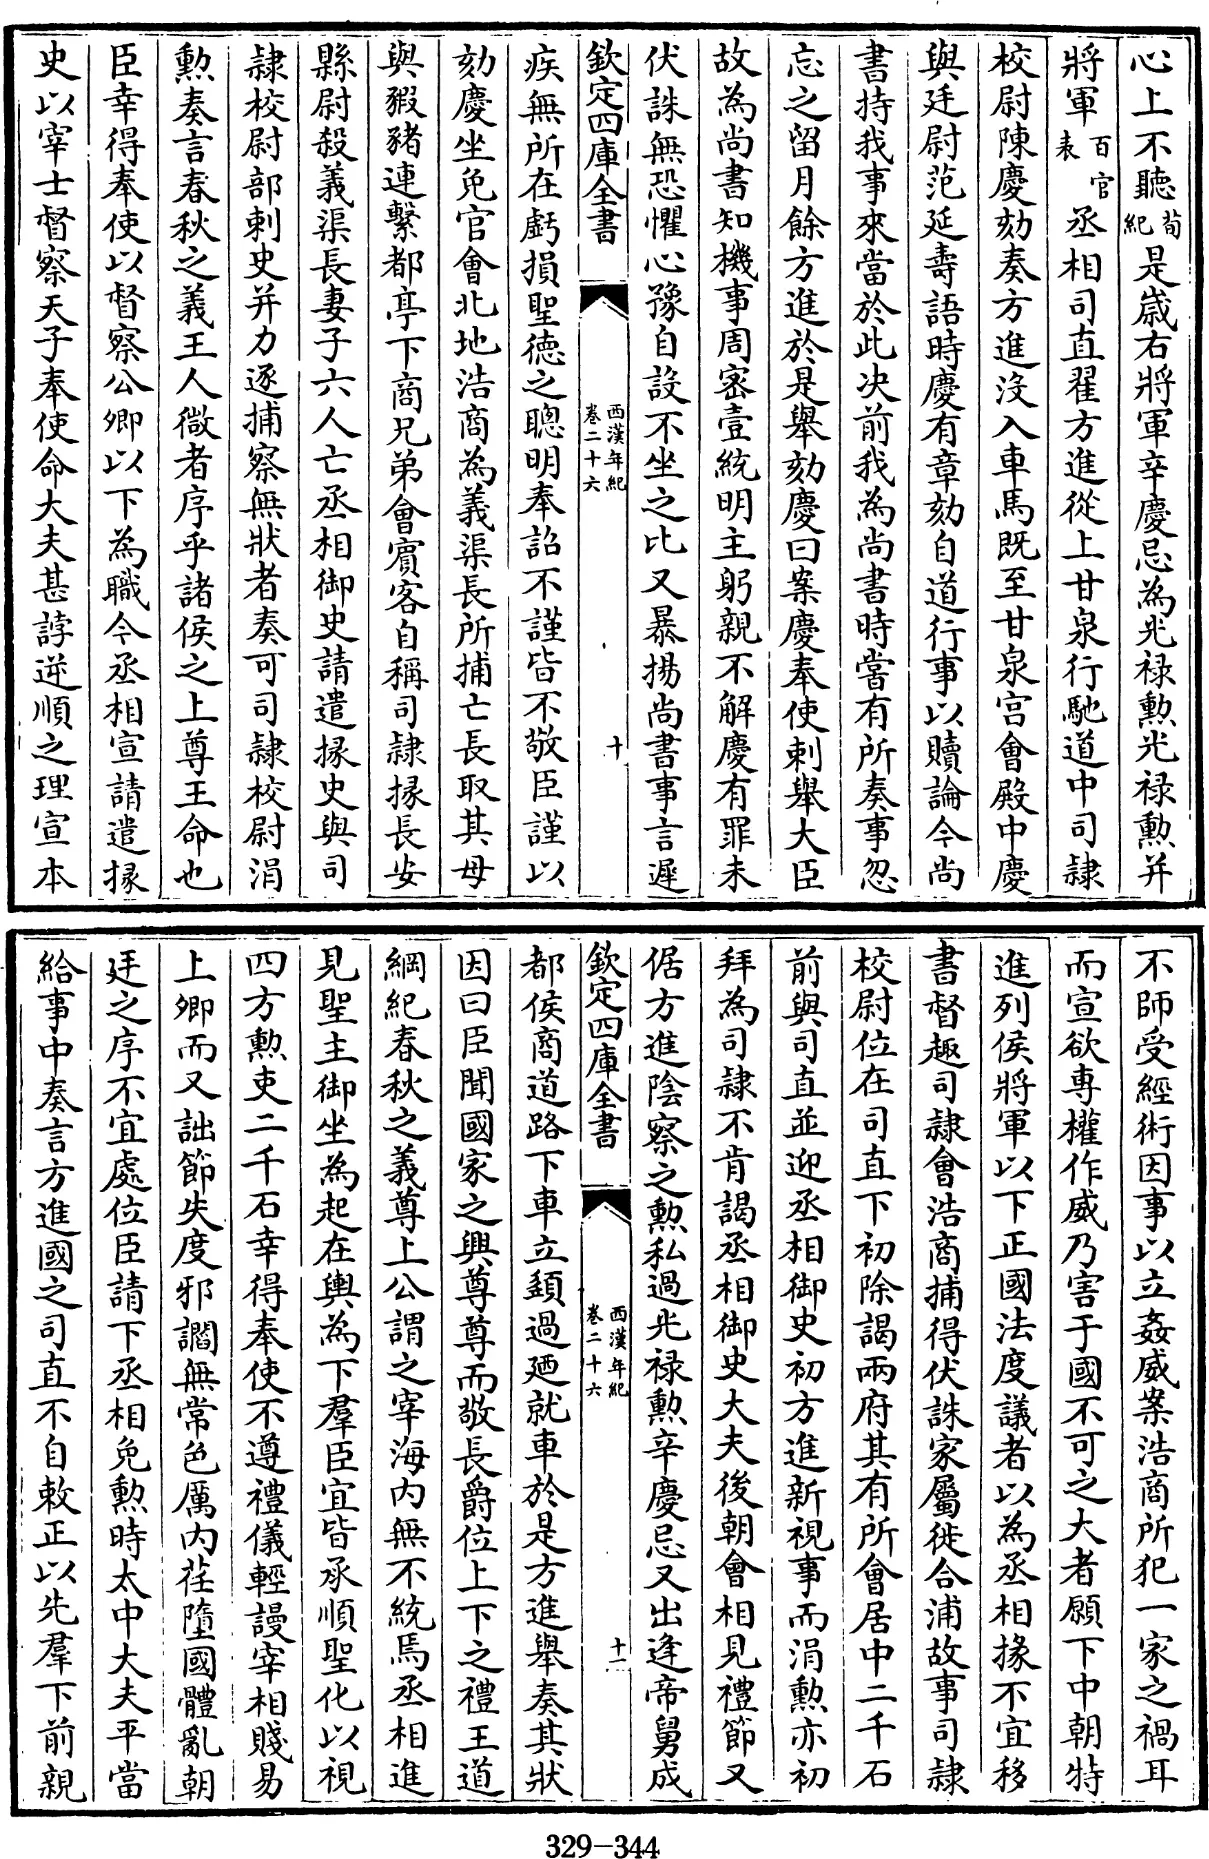 心上不聽荀紀是歳右將軍辛慶忌為光禄勲光禄勲并
將軍百官表丞相司直翟方進從上甘泉行馳道中司隷
校尉陳慶劾奏方進没入車馬既至甘泉宫會殿中慶
與廷尉范延壽語時慶有章劾自道行事以贖論今尚
書持我事來當於此决前我為尚書時嘗有所奏事忽
忘之留月餘方進於是舉劾慶曰案慶奉使刺舉大臣
故為尚書知機事周宻壹統明主躬親不解慶有罪未
伏誅無恐懼心豫自設不坐之比又暴揚尚書事言遲
欽定四庫全書
西漢年紀
卷二十六
十
疾無所在虧損聖徳之聰明奉詔不謹皆不敬臣謹以
劾慶坐免官會北地浩商為義渠長所捕亡長取其母
與豭豬連繫都亭下商兄弟會賓客自稱司隷掾長安
縣尉殺義渠長妻子六人亡丞相御史請遣掾史與司
隷校尉部刺史并力逐捕察無狀者奏可司隷校尉涓
勲奏言春秋之義王人微者序乎諸侯之上尊王命也
臣幸得奉使以督察公卿以下為職今丞相宣請遣掾
史以宰士督察天子奉使命大夫甚誖逆順之理宣本
不師受經術因事以立姦威案浩商所犯一家之禍耳
而宣欲専權作威乃害于國不可之大者願下中朝特
進列侯將軍以下正國法度議者以為丞相掾不宜移
書督趣司隷會浩商捕得伏誅家屬徙合浦故事司隷
校尉位在司直下初除謁兩府其有所會居中二千石
前與司直並迎丞相御史初方進新視事而涓勲亦初
拜為司隷不肯謁丞相御史大夫後朝會相見禮節又
倨方進陰察之勲私過光禄勲辛慶忌又出逢帝舅成
欽定四庫全書
西漢年紀
卷二十六
十一
都侯商道路下車立頿過廼就車於是方進舉奏其狀
因曰臣聞國家之興尊尊而敬長爵位上下之禮王道
綱紀春秋之義尊上公謂之宰海内無不統焉丞相進
見聖主御坐為起在輿為下羣臣宜皆承順聖化以視
四方勲吏二千石幸得奉使不遵禮儀輕謾宰相賤易
上卿而又詘節失度邪讇無常色厲内荏墮國體亂朝
廷之序不宜處位臣請下丞相免勲時太中大夫平當
給事中奏言方進國之司直不自敕正以先羣下前親
329-344